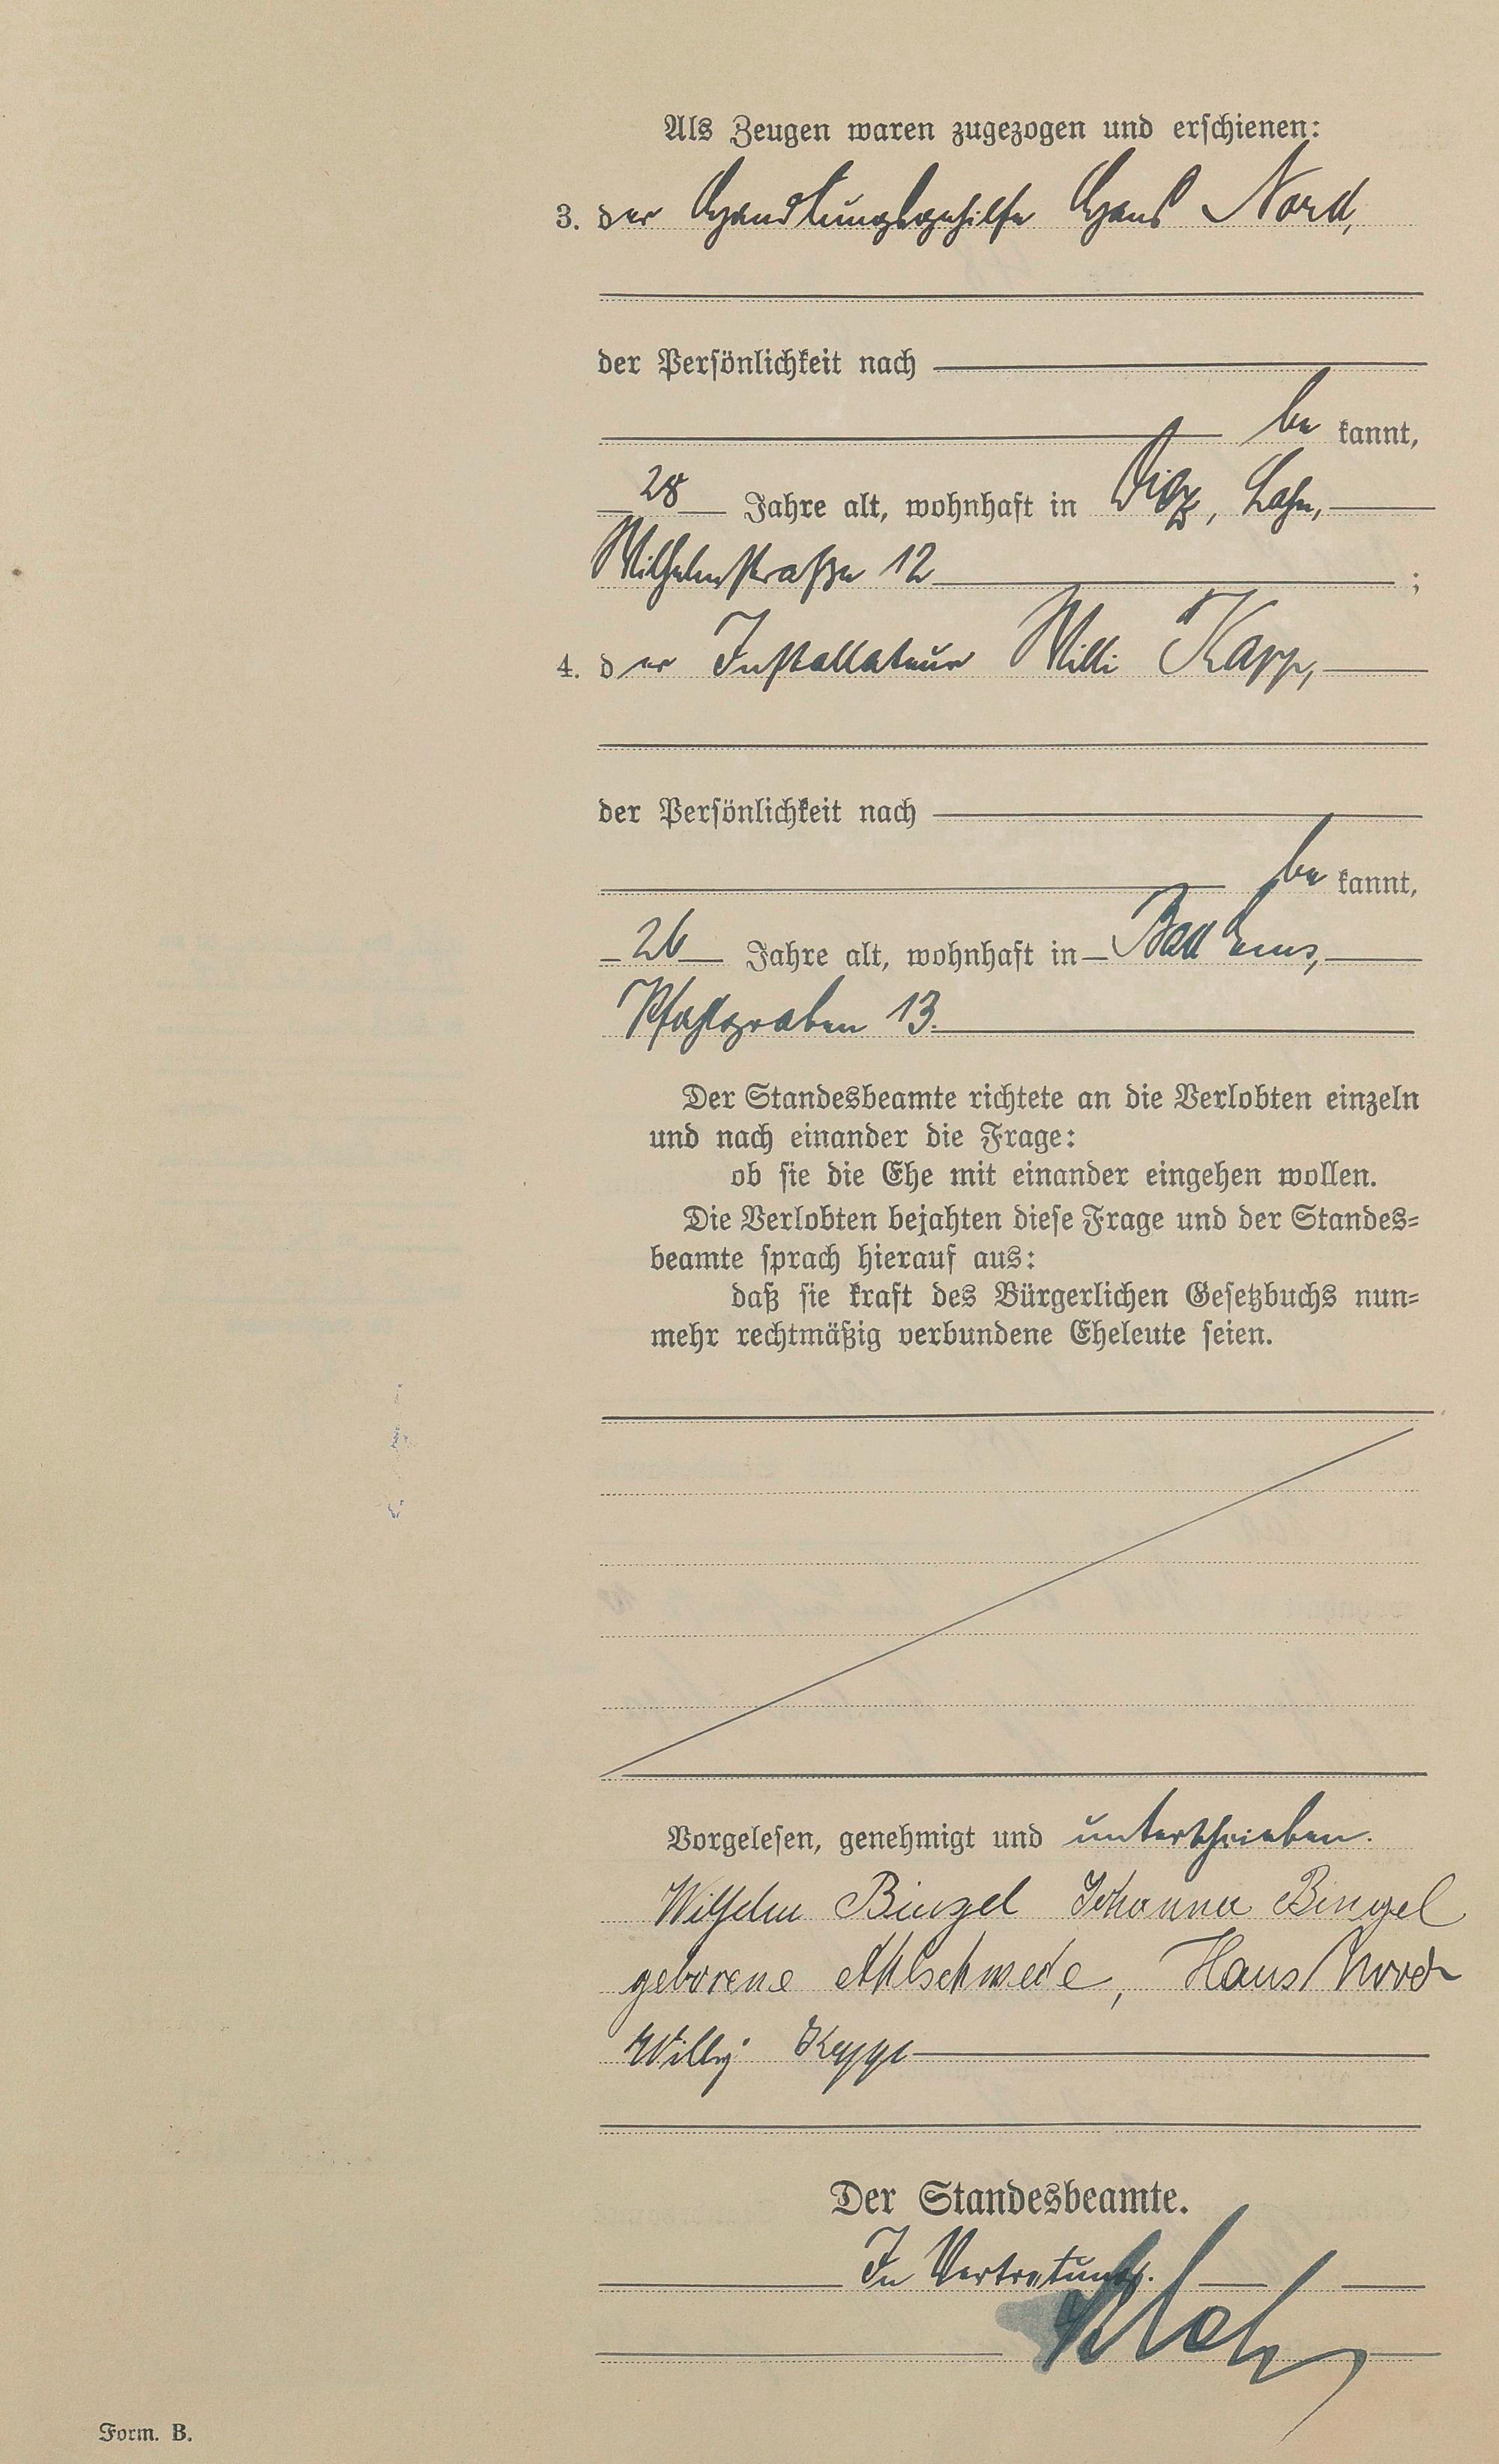 Als Zeugen waren zugezogen und erschienen:
3. der Handlungsgehilfe Hans Nord,
der Persönlichkeit nach
be kannt,
28 Jahre alt, wohnhaft in Diez, Lahn,
Wilhelmstraße 12 ;
4. der Installateur Willi Kapp,
der Persönlichkeit nach
be kannt,
26 Jahre alt, wohnhaft in Bad Ems,
Pfahlgraben 13.
Der Standesbeamte richtete an die Verlobten einzeln
und nach einander die Frage:
ob sie die Ehe mit einander eingehen wollen.
Die Verlobten bejahten diese Frage und der Standes=
beamte sprach hierauf aus:
daß sie kraft des Bürgerlichen Gesetzbuchs nun=
mehr rechtmäßig verbundene Eheleute seien.
Vorgelesen, genehmigt und unterschrieben.
Wilhelm Bingel Johanna Bingel
geborene Ahlschwede, Hans Nord
Willy Kapp
Der Standesbeamte.
In Vertretung.
Form. B.